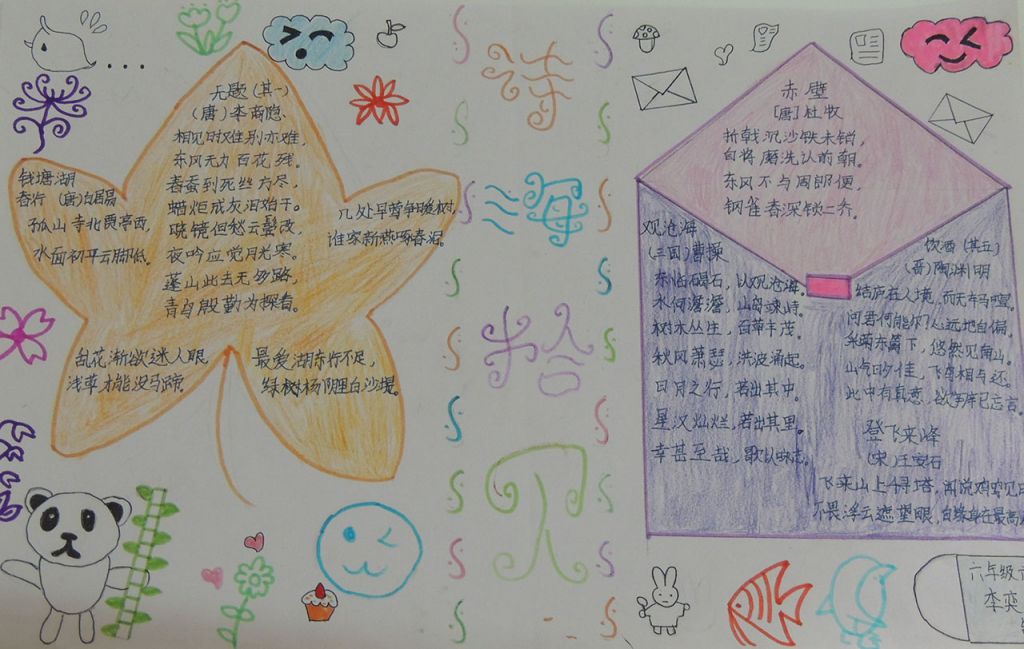 无题(其一)
(唐)李商隐
相见时难别亦难,
东风无力百花残。
春蚕到死丝方尽,
蜡炬成灰泪始干。
晓镜但愁云鬓改,
夜吟应觉月光寒。
蓬山此去无多路,
青鸟殷勤为探看。
钱塘湖
春行 (唐)白居易
孤山寺北贾亭西,
水面初平云脚低。
几处早莺争暖树,
谁家新燕啄春泥。
乱花渐欲迷人眼,
浅草才能没马蹄。
最爱湖东行不足,
绿树杨阴里白沙堤。
诗
海
拾
贝
赤壁
[唐]杜牧
折戟沉沙铁未销,
自将磨洗认前朝。
东风不与周郎便,
铜雀春深锁二乔。
观沧海
(三国)曹操
东临碣石,以观沧海。
水何澹澹,山岛竦峙。
树木丛生,百草丰茂。
秋风萧瑟,洪波涌起。
日月之行,若出其中。
星汉灿烂,若出其里。
幸甚至哉,歌以咏志。
饮酒(其五)
(晋)陶渊明
结庐在人境,而无车马喧。
问君何能尔?心远地自偏。
采菊东篱下,悠然见南山。
山气日夕佳,飞鸟相与还。
此中有真意,欲辨已忘言。
登飞来峰
(宋)王安石
飞来山上千寻塔,闻说鸡鸣见日
不畏浮云遮望眼,自缘身在最高
六年级
李奕